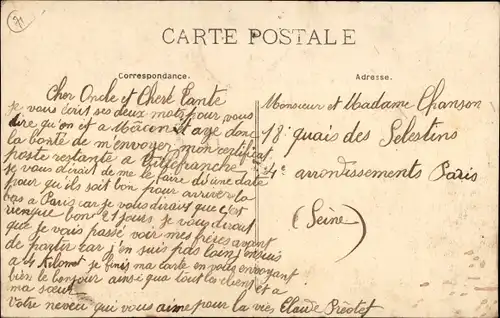 71
CARTE POSTALE
Correspondance.
Adresse.
Cher Oncle et Chert Tante
je vous ecrit ses deux mots pour vous
dire qu'on et a Mâcon et aye donc
la bonté de m'envoyer mon certificat
poste restante a Villefranche
je vous dirait de me le faire d'une date
pour qu'ils soit bon pour arriver la
bas a Paris car je vous dirais que c'est
bon 21 jours. je vous dirait
que je vais passé voir mes frères avant
de partir car j'en suis pas loin j'en suis
a 4 Kilomet je finis ma carte en vous envoyant
bien le bonjour ainsi qua tout les clients et a
ma sœur
votre neveu qui vous aime pour la vie Claude
Monsieur et Madame Chanson
18 quais des Selestins
4e arrondissements Paris
(Seine)